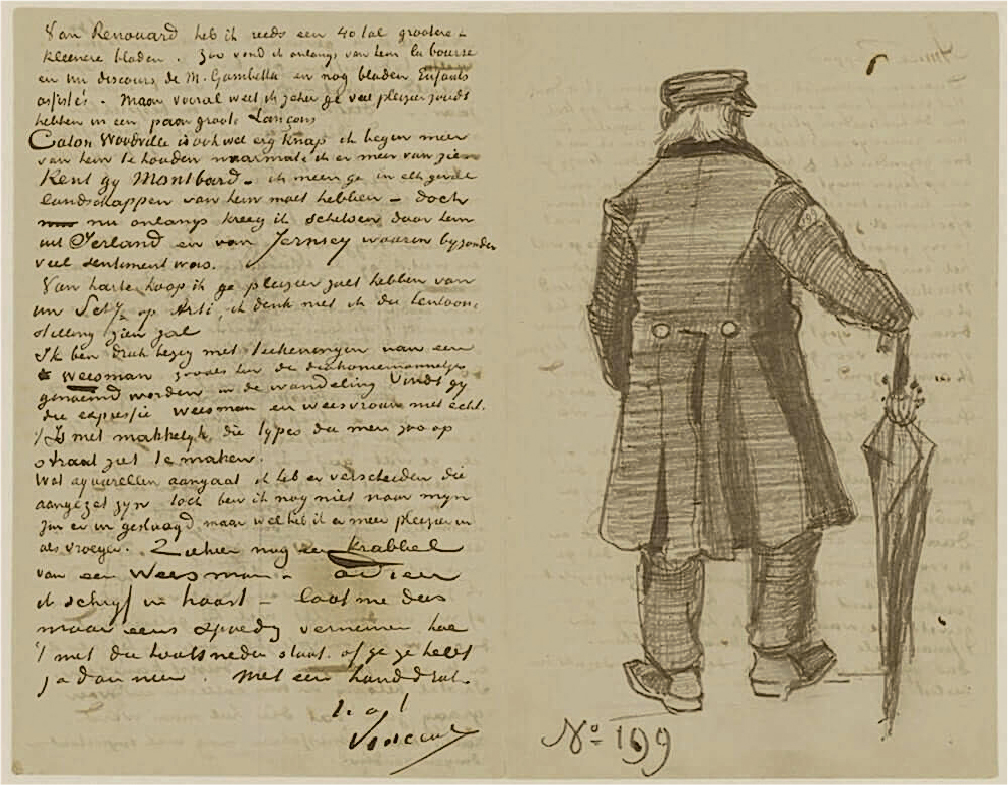 Van Renouard heb ik reeds een 40 tal grootere &
kleinere bladen. Zoo vond ik onlangs van hem la bourse
en un discours de M. Gambetta en nog bladen Enfants
assistés. Maar vooral weet ik zeker ge veel pleizier zoudt
hebben in een paar groote Lançons
Caton Woodville is ook wel erg knap ik begin meer
van hem te houden naarmate ik er meer van zie
Kent gy Montbard – ik meen ge in elk geval
landschappen van hem moet hebben – doch
nu onlangs kreeg ik schetsen door hem
uit Ierland en van Jernsey waarin byzonder
veel sentiment was.
Van harte hoop ik ge pleizier zult hebben van
uw op Arti, ik denk niet ik die tentoon-
stelling zien zal
Ik ben druk bezig met teekeningen van een
weesman zooals hier de diakoniemannetjes
genoemd worden in de wandeling Vindt gy
die expressie weesman en weesvrouw niet echt.
't Is niet makkelyk, die types die men zoo op
straat ziet te maken.
Wat aquarellen aangaat ik heb er verscheiden die
aangezet zyn toch ben ik nog niet naar myn
zin er in geslaagd maar wel heb ik er meer pleizier in
als vroeger. Ziehier nog een krabbel
van een Weesman – adieu
ik schryf in haast – laat me dus
maar eens spoedig vernemen hoe
't met die houtsneden staat. of ge ze hebt
ja dan neen. Met een handdruk.
t. à t.
Vincent
No 199